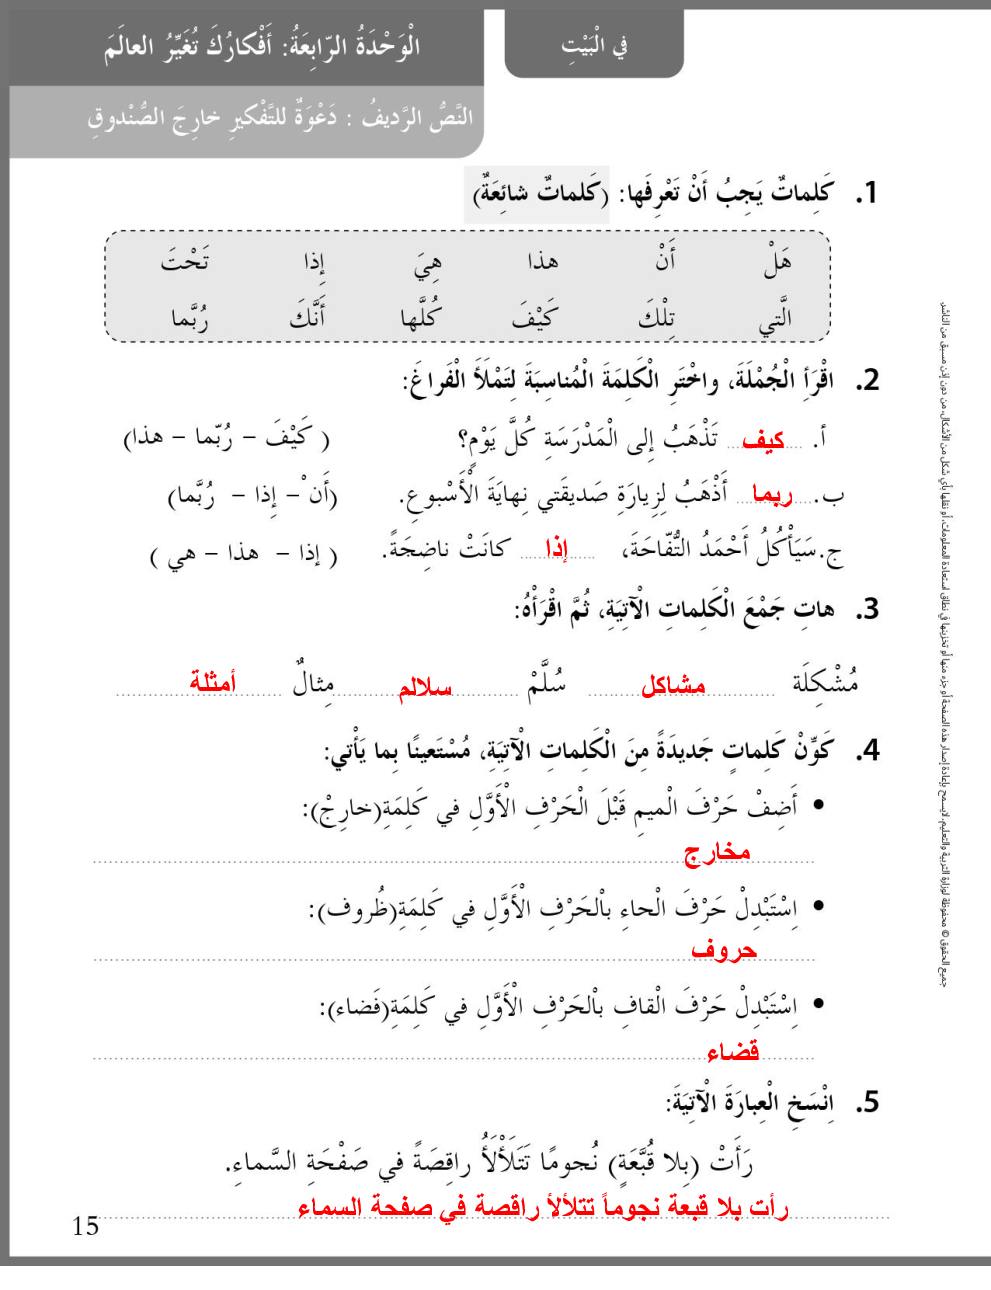 في الْبَيْتِ
الْوَحْدَةُ الرّابِعَةُ: أَفْكارُكَ تُغَيِّرُ العالَمَ
النَّصُّ الرَّديفُ : دَعْوَةٌ للتَّفْكيرِ خارِجَ الصُّنْدوقِ
1. كَلِماتٌ يَجِبُ أَنْ تَعْرِفَها: (كَلماتٌ شائِعَةٌ)
هَلْ أَنْ هذا هِيَ إِذا تَحْتَ
الَّتي تِلْكَ كَيْفَ كُلَّها أَنَّكَ رُبَّما
2. اقْرَأِ الْجُمْلَةَ، واخْتَرِ الْكَلِمَةَ الْمُناسِبَةَ لِتَمْلَأَ الْفَراغَ:
أ. كيف تَذْهَبُ إِلى الْمَدْرَسَةِ كُلَّ يَوْمٍ؟ ( كَيْفَ – رُبّما – هذا)
ب. ربما أَذْهَبُ لِزِيارَةِ صَديقَتي نِهايَةَ الْأُسْبوعِ. (أَنْ – إِذا – رُبَّما)
ج. سَيَأْكُلُ أَحْمَدُ التُّفّاحَةَ، إذا كانَتْ ناضِجَةً. ( إذا – هذا – هي )
3. هاتِ جَمْعَ الْكَلِماتِ الْآتِيَةِ، ثُمَّ اقْرَأْهُ:
مُشْكِلَة مشاكل سُلَّمْ سلالم مِثالٌ أمثلة
4. كَوِّنْ كَلِماتٍ جَديدَةً مِنَ الْكَلِماتِ الْآتِيَةِ، مُسْتَعينًا بِما يَأْتي:
• أَضِفْ حَرْفَ الْميمِ قَبْلَ الْحَرْفِ الْأَوَّلِ في كَلِمَةِ(خارِجْ):
مخارج
• اِسْتَبْدِلْ حَرْفَ الْحاءِ بالْحَرْفِ الْأَوَّلِ في كَلِمَةِ(ظُروف):
حروف
• اِسْتَبْدِلْ حَرْفَ الْقافِ بالْحَرْفِ الْأَوَّلِ في كَلِمَةِ(فَضاء):
قضاء
5. اِنْسَخِ الْعِبارَةَ الْآتِيَةَ:
رَأَتْ (بِلا قُبَّعَةٍ) نُجومًا تَتَلَأْلَأُ راقِصَةً في صَفْحَةِ السَّماءِ.
رأت بلا قبعة نجوماً تتلألأ راقصة في صفحة السماء
15
جميع الحقوق © محفوظة لوزارة التربية والتعليم، لا يسمح بإعادة إصدار هذه الصفحة أو جزء منها أو تخزينها في نطاق استعادة المعلومات، أو نقلها بأي شكل من الأشكال، من دون إذن مسبق من الناشر